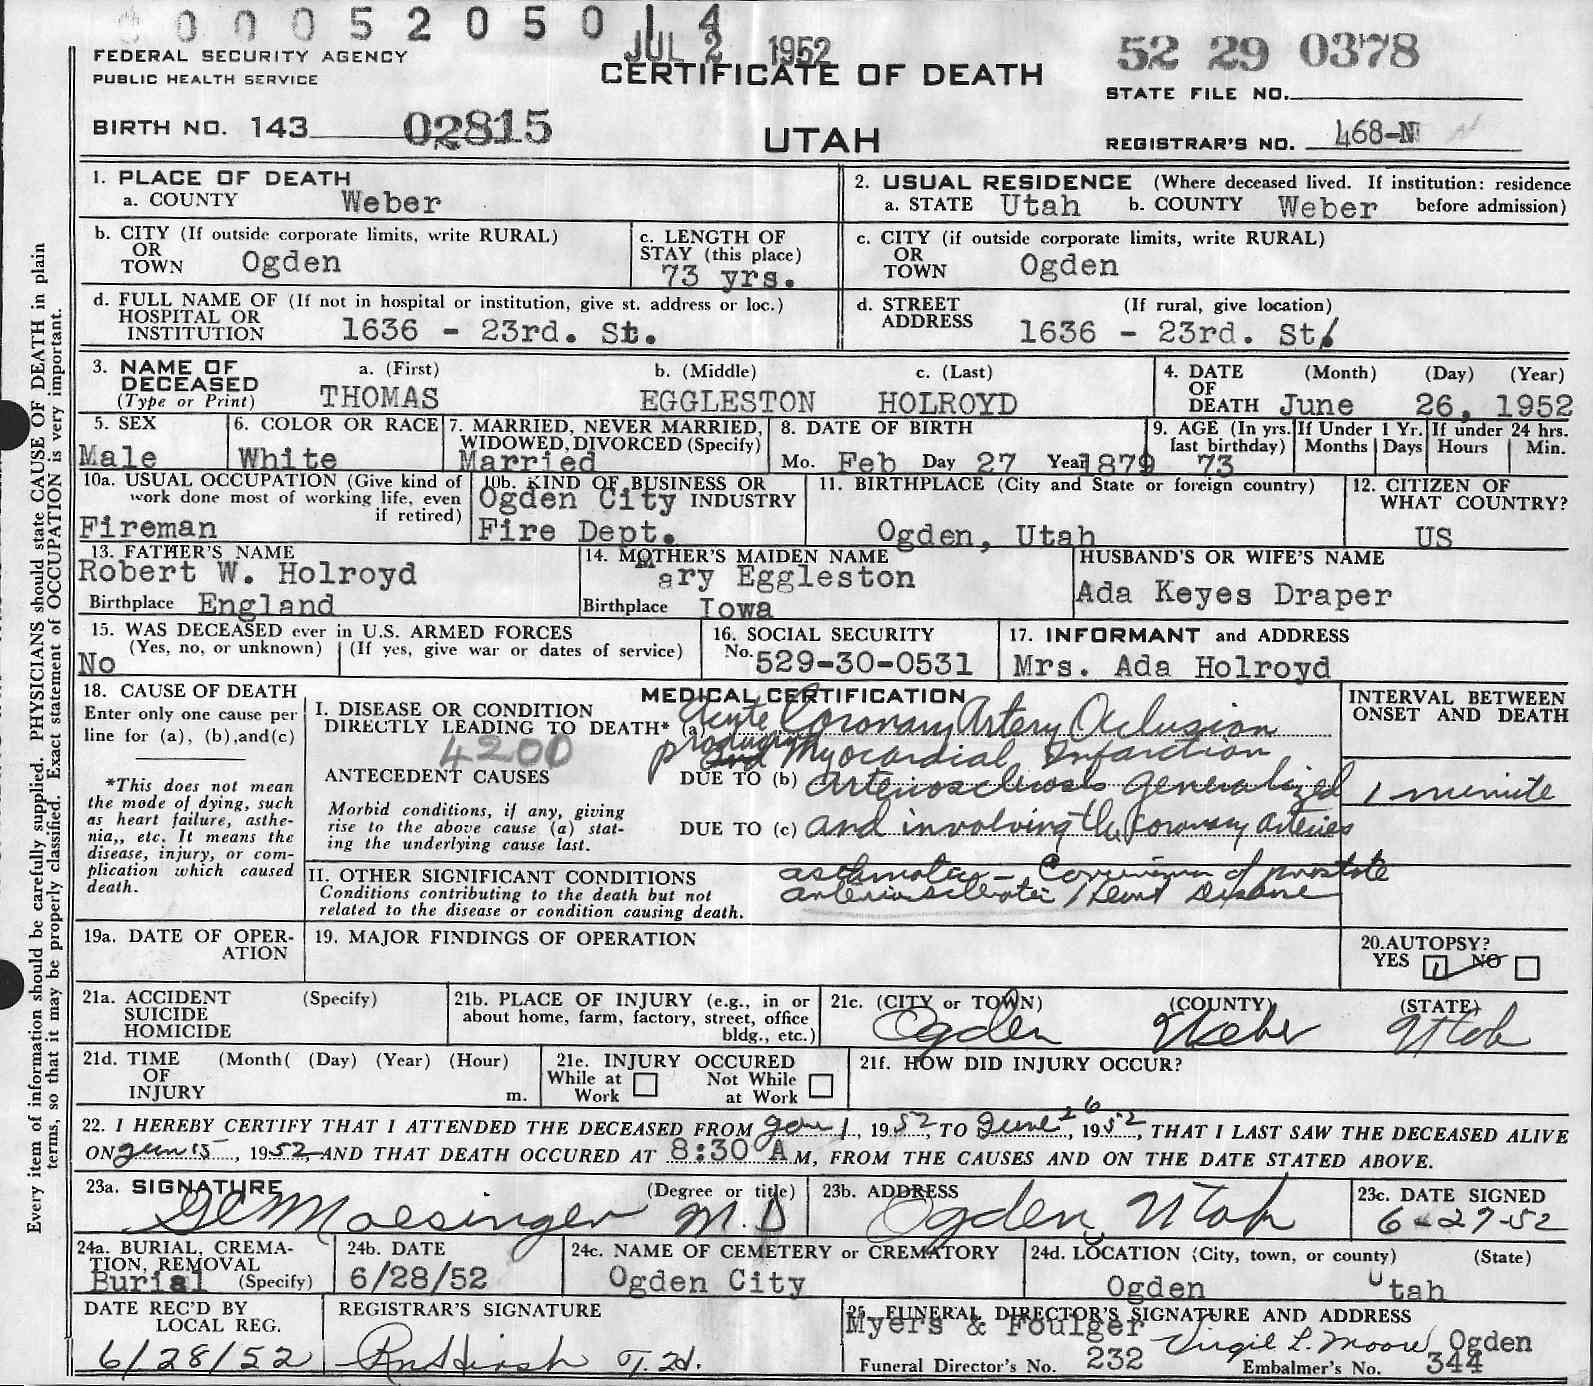 00052050 14
JUL 2 1952
FEDERAL SECURITY AGENCY
PUBLIC HEALTH SERVICE
CERTIFICATE OF DEATH
52 29 0378
STATE FILE NO.
BIRTH NO. 143 02815
UTAH
REGISTRAR'S NO. 468-N
1. PLACE OF DEATH
a. COUNTY Weber
2. USUAL RESIDENCE (Where deceased lived. If institution: residence before admission)
a. STATE Utah b. COUNTY Weber
b. CITY (If outside corporate limits, write RURAL)
OR
TOWN Ogden
c. LENGTH OF
STAY (this place)
73 yrs.
c. CITY (if outside corporate limits, write RURAL)
OR
TOWN Ogden
d. FULL NAME OF (If not in hospital or institution, give st. address or loc.)
HOSPITAL OR
INSTITUTION 1636 - 23rd. St.
d. STREET (If rural, give location)
ADDRESS 1636 - 23rd. St.
3. NAME OF
DECEASED
(Type or Print)
a. (First) b. (Middle) c. (Last)
THOMAS EGGLESTON HOLROYD
4. DATE (Month) (Day) (Year)
OF
DEATH June 26, 1952
5. SEX
Male
6. COLOR OR RACE
White
7. MARRIED, NEVER MARRIED,
WIDOWED, DIVORCED (Specify)
Married
8. DATE OF BIRTH
Mo. Feb Day 27 Year 1879
9. AGE (In yrs.
last birthday)
73
If Under 1 Yr.
Months Days
If under 24 hrs.
Hours Min.
10a. USUAL OCCUPATION (Give kind of
work done most of working life, even
if retired)
Fireman
10b. KIND OF BUSINESS OR
INDUSTRY
Ogden City
Fire Dept.
11. BIRTHPLACE (City and State or foreign country)
Ogden, Utah
12. CITIZEN OF
WHAT COUNTRY?
US
13. FATHER'S NAME
Robert W. Holroyd
Birthplace England
14. MOTHER'S MAIDEN NAME
Mary Eggleston
Birthplace Iowa
HUSBAND'S OR WIFE'S NAME
Ada Keyes Draper
15. WAS DECEASED ever in U.S. ARMED FORCES
(Yes, no, or unknown) (If yes, give war or dates of service)
No
16. SOCIAL SECURITY
No. 529-30-0531
17. INFORMANT and ADDRESS
Mrs. Ada Holroyd
18. CAUSE OF DEATH
Enter only one cause per
line for (a), (b), and (c)
*This does not mean
the mode of dying, such
as heart failure, asthe-
nia,, etc. It means the
disease, injury, or com-
plication which caused
death.
MEDICAL CERTIFICATION
I. DISEASE OR CONDITION
DIRECTLY LEADING TO DEATH* (a) Acute Coronary Artery Occlusion
4200
producing Myocardial Infarction
ANTECEDENT CAUSES
DUE TO (b) Arteriosclerosis generalized
Morbid conditions, if any, giving
rise to the above cause (a) stat-
ing the underlying cause last.
DUE TO (c) and involving the Coronary arteries
INTERVAL BETWEEN
ONSET AND DEATH
1 minute
II. OTHER SIGNIFICANT CONDITIONS
Conditions contributing to the death but not
related to the disease or condition causing death.
of prostate
arteriosclerotic Heart Disease
19a. DATE OF OPER-
ATION
19. MAJOR FINDINGS OF OPERATION
20. AUTOPSY?
YES NO
21a. ACCIDENT (Specify)
SUICIDE
HOMICIDE
21b. PLACE OF INJURY (e.g., in or
about home, farm, factory, street, office
bldg., etc.)
21c. (CITY or TOWN) (COUNTY) (STATE)
Ogden Weber Utah
21d. TIME (Month( (Day) (Year) (Hour)
OF
INJURY m.
21e. INJURY OCCURED
While at Work Not While at Work
21f. HOW DID INJURY OCCUR?
22. I HEREBY CERTIFY THAT I ATTENDED THE DECEASED FROM Jan 1, 1952, TO June 26, 1952, THAT I LAST SAW THE DECEASED ALIVE
ON Jun 15, 1952, AND THAT DEATH OCCURED AT 8:30 A M, FROM THE CAUSES AND ON THE DATE STATED ABOVE.
23a. SIGNATURE (Degree or title)
Moesinger M.D
23b. ADDRESS
Ogden, Utah
23c. DATE SIGNED
6-27-52
24a. BURIAL, CREMA-
TION, REMOVAL
(Specify)
Burial
24b. DATE
6/28/52
24c. NAME OF CEMETERY or CREMATORY
Ogden City
24d. LOCATION (City, town, or county) (State)
Ogden Utah
DATE REC'D BY
LOCAL REG.
6/28/52
REGISTRAR'S SIGNATURE
25. FUNERAL DIRECTOR'S SIGNATURE AND ADDRESS
Myers & Foulger Virgil L. Moore Ogden
Funeral Director's No. 232 Embalmer's No. 344
Every item of information should be carefully supplied. PHYSICIANS should state CAUSE OF DEATH in plain
terms, so that it may be properly classified. Exact statement of OCCUPATION is very important.